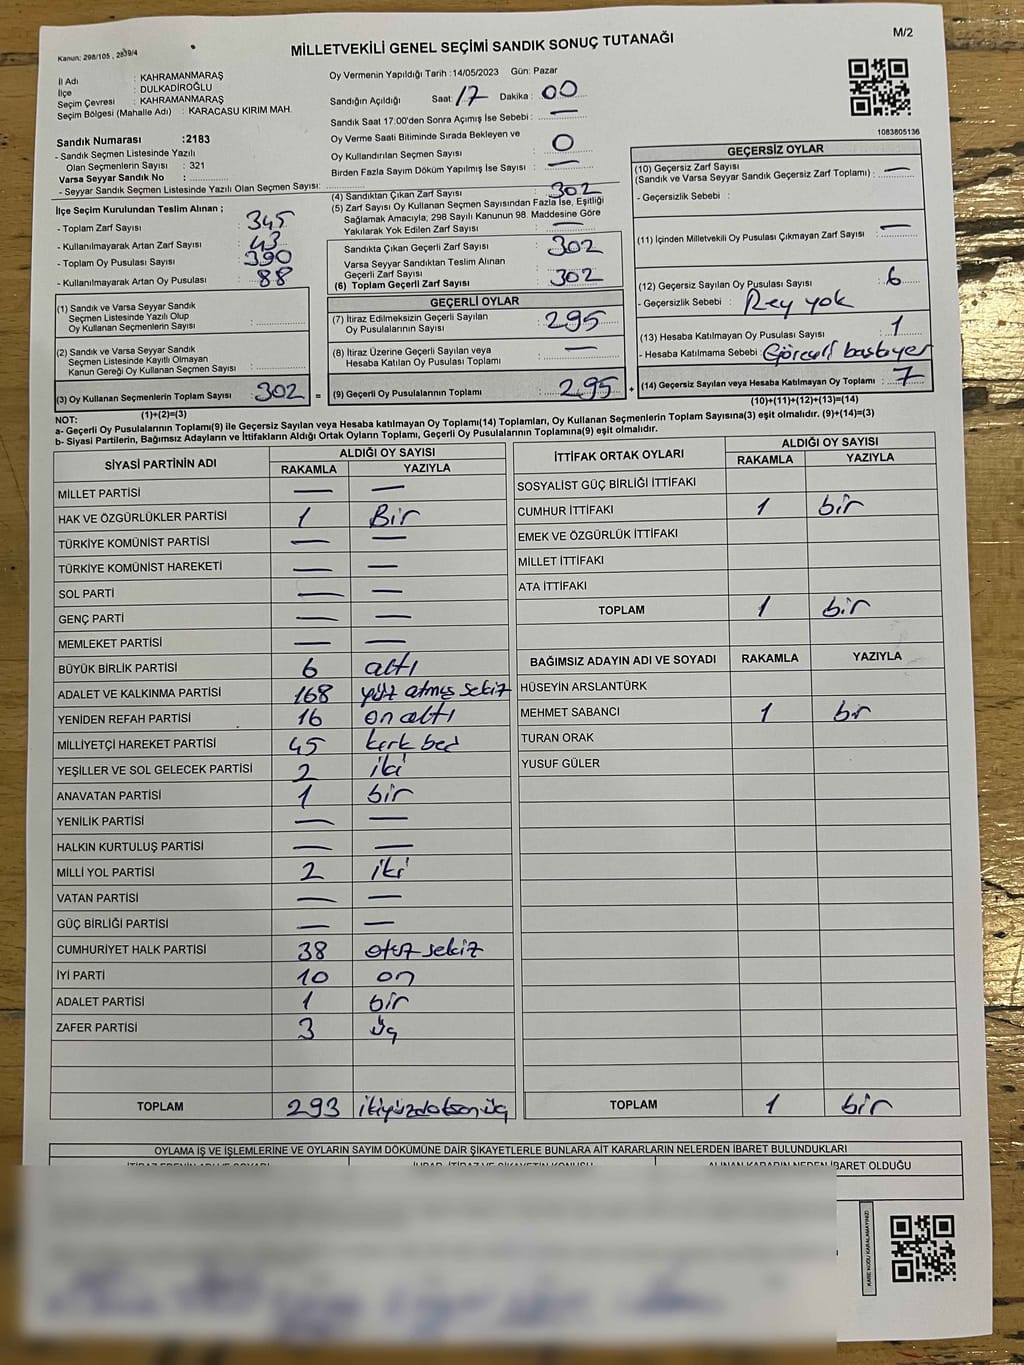 Kanun: 298/105 , 2839/4
MİLLETVEKİLİ GENEL SEÇİMİ SANDIK SONUÇ TUTANAĞI
M/2
İl Adı : KAHRAMANMARAŞ
İlçe : DULKADİROĞLU
Seçim Çevresi : KAHRAMANMARAŞ
Seçim Bölgesi (Mahalle Adı) : KARACASU KIRIM MAH.
Sandık Numarası :2183
- Sandık Seçmen Listesinde Yazılı
Olan Seçmenlerin Sayısı : 321
Varsa Seyyar Sandık No :
- Seyyar Sandık Seçmen Listesinde Yazılı Olan Seçmen Sayısı:
Oy Vermenin Yapıldığı Tarih :14/05/2023 Gün: Pazar
Sandığın Açıldığı Saat: 17 Dakika : 00
Sandık Saat 17:00'den Sonra Açılmış İse Sebebi : —
Oy Verme Saati Bitiminde Sırada Bekleyen ve
Oy Kullandırılan Seçmen Sayısı : 0
Birden Fazla Sayım Döküm Yapılmış İse Sayısı : —
1083805136
İlçe Seçim Kurulundan Teslim Alınan ;
- Toplam Zarf Sayısı : 345
- Kullanılmayarak Artan Zarf Sayısı : 43
- Toplam Oy Pusulası Sayısı : 390
- Kullanılmayarak Artan Oy Pusulası : 88
(1) Sandık ve Varsa Seyyar Sandık
Seçmen Listesinde Yazılı Olup
Oy Kullanan Seçmenlerin Sayısı :
(2) Sandık ve Varsa Seyyar Sandık
Seçmen Listesinde Kayıtlı Olmayan
Kanun Gereği Oy Kullanan Seçmen Sayısı :
(3) Oy Kullanan Seçmenlerin Toplam Sayısı : 302 =
(1)+(2)=(3)
(4) Sandıktan Çıkan Zarf Sayısı : 302
(5) Zarf Sayısı Oy Kullanan Seçmen Sayısından Fazla İse, Eşitliği
Sağlamak Amacıyla; 298 Sayılı Kanunun 98. Maddesine Göre
Yakılarak Yok Edilen Zarf Sayısı : —
Sandıkta Çıkan Geçerli Zarf Sayısı : 302
Varsa Seyyar Sandıktan Teslim Alınan
Geçerli Zarf Sayısı :
(6) Toplam Geçerli Zarf Sayısı : 302
GEÇERLİ OYLAR
(7) İtiraz Edilmeksizin Geçerli Sayılan
Oy Pusulalarının Sayısı : 295
(8) İtiraz Üzerine Geçerli Sayılan veya
Hesaba Katılan Oy Pusulası Toplamı : —
(9) Geçerli Oy Pusulalarının Toplamı : 295 +
GEÇERSİZ OYLAR
(10) Geçersiz Zarf Sayısı
(Sandık ve Varsa Seyyar Sandık Geçersiz Zarf Toplamı) : —
- Geçersizlik Sebebi :
(11) İçinden Milletvekili Oy Pusulası Çıkmayan Zarf Sayısı : —
(12) Geçersiz Sayılan Oy Pusulası Sayısı : 6
- Geçersizlik Sebebi : Rey yok
(13) Hesaba Katılmayan Oy Pusulası Sayısı : 1
- Hesaba Katılmama Sebebi :
(14) Geçersiz Sayılan veya Hesaba Katılmayan Oy Toplamı : 7
(10)+(11)+(12)+(13)=(14)
NOT:
a- Geçerli Oy Pusulasının Toplamı(9) ile Geçersiz Sayılan veya Hesaba katılmayan Oy Toplamı(14) Toplamları, Oy Kullanan Seçmenlerin Toplam Sayısına(3) eşit olmalıdır. (9)+(14)=(3)
b- Siyasi Partilerin, Bağımsız Adayların ve İttifakların Aldığı Ortak Oyların Toplamı, Geçerli Oy Pusulasının Toplamına(9) eşit olmalıdır.
SİYASİ PARTİNİN ADI ALDIĞI OY SAYISI
RAKAMLA YAZIYLA
MİLLET PARTİSİ — —
HAK VE ÖZGÜRLÜKLER PARTİSİ 1 Bir
TÜRKİYE KOMÜNİST PARTİSİ — —
TÜRKİYE KOMÜNİST HAREKETİ — —
SOL PARTİ — —
GENÇ PARTİ — —
MEMLEKET PARTİSİ — —
BÜYÜK BİRLİK PARTİSİ 6 altı
ADALET VE KALKINMA PARTİSİ 168 yüz atmış sekiz
YENİDEN REFAH PARTİSİ 16 on altı
MİLLİYETÇİ HAREKET PARTİSİ 45 kırk beş
YEŞİLLER VE SOL GELECEK PARTİSİ 2 iki
ANAVATAN PARTİSİ 1 bir
YENİLİK PARTİSİ — —
HALKIN KURTULUŞ PARTİSİ — —
MİLLİ YOL PARTİSİ 2 iki
VATAN PARTİSİ — —
GÜÇ BİRLİĞİ PARTİSİ — —
CUMHURİYET HALK PARTİSİ 38 otuz sekiz
İYİ PARTİ 10 on
ADALET PARTİSİ 1 bir
ZAFER PARTİSİ 3 üç
TOPLAM 293 ikiyüzdoksanüç
İTTİFAK ORTAK OYLARI ALDIĞI OY SAYISI
RAKAMLA YAZIYLA
SOSYALİST GÜÇ BİRLİĞİ İTTİFAKI
CUMHUR İTTİFAKI 1 bir
EMEK VE ÖZGÜRLÜK İTTİFAKI
MİLLET İTTİFAKI
ATA İTTİFAKI
TOPLAM 1 bir
BAĞIMSIZ ADAYIN ADI VE SOYADI RAKAMLA YAZIYLA
HÜSEYİN ARSLANTÜRK
MEHMET SABANCI 1 bir
TURAN ORAK
YUSUF GÜLER
TOPLAM 1 bir
OYLAMA İŞ VE İŞLEMLERİNE VE OYLARIN SAYIM DÖKÜMÜNE DAİR ŞİKAYETLERLE BUNLARA AİT KARARLARIN NELERDEN İBARET BULUNDUKLARI
ALINAN KARARIN NEDEN İBARET OLDUĞU
KARE KODU KARALAMAYINIZ!